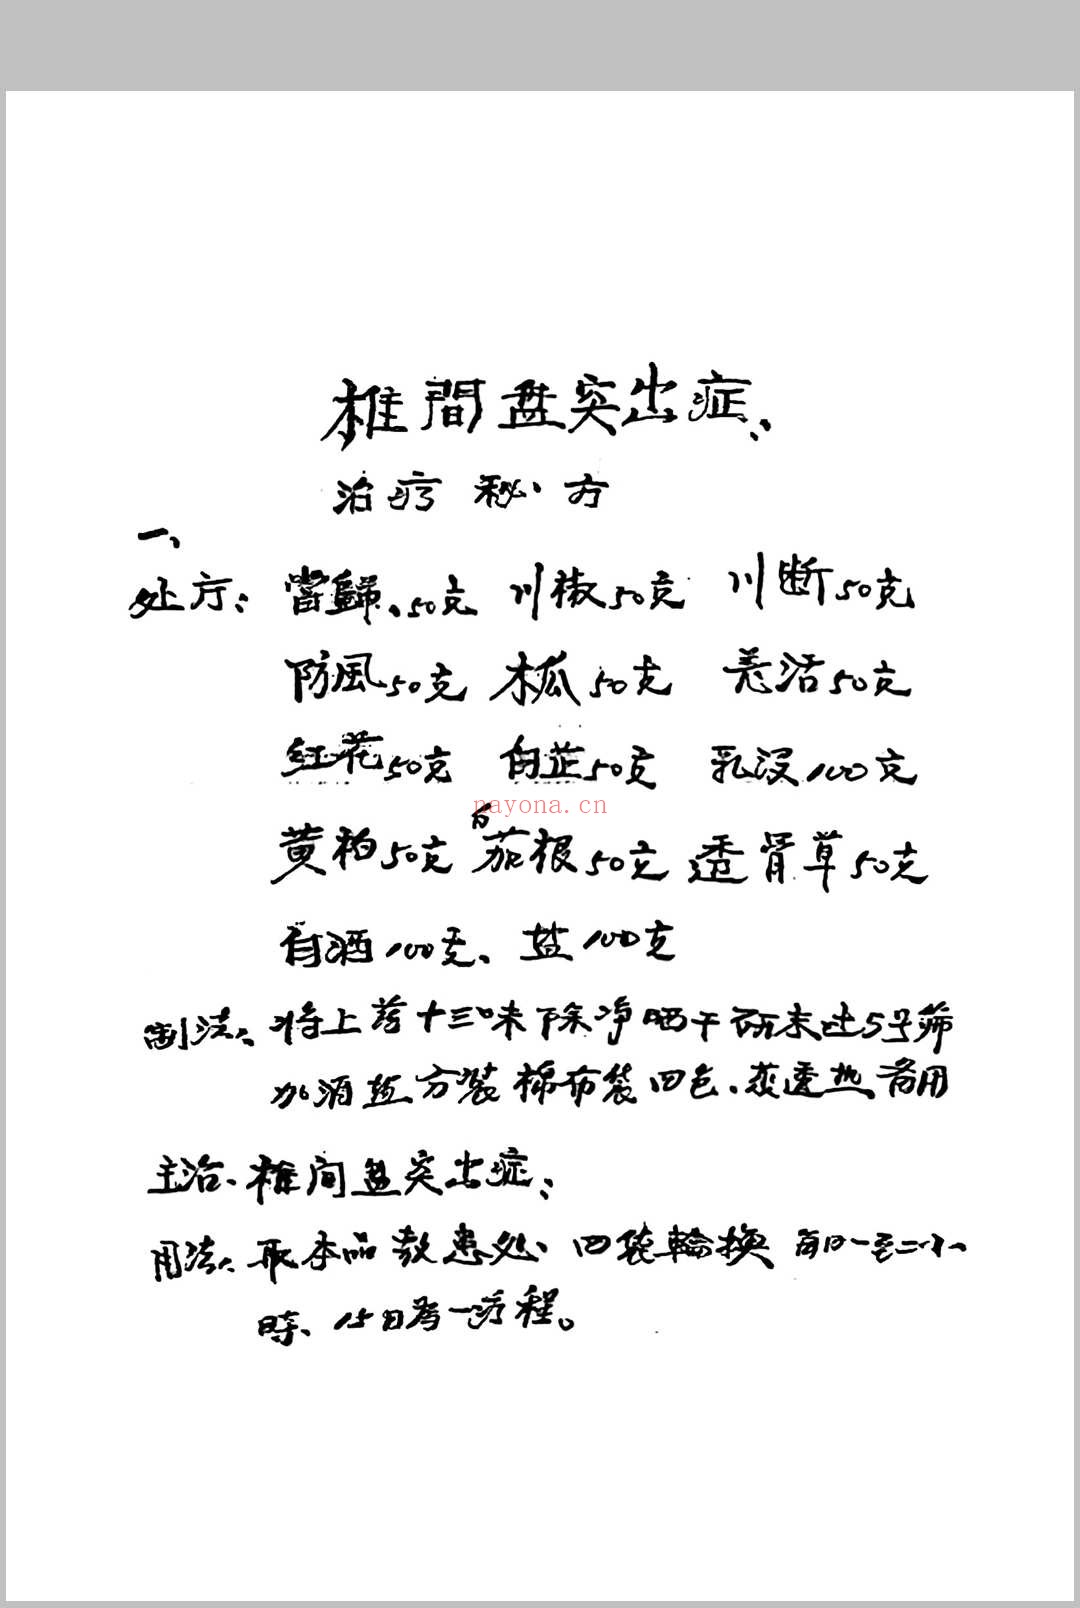 椎間盘突出症、
治疗秘方
一、
处方：當歸、50克 川椒50克 川断50克
防風50克 木瓜50克 羌活50克
红花50克 白芷50克 乳没100克
nayona.cn
黄柏50克 白茄根50克 透骨草50克
白酒100克、盐100克
制法：将上药十三味除净晒干研末过5号筛
加酒盐分装棉布袋四包、蒸透热备用
主治、椎间盘突出症、
用法：取本品敷患处、四袋輪換 每日一至二小
時、15日为一疗程。